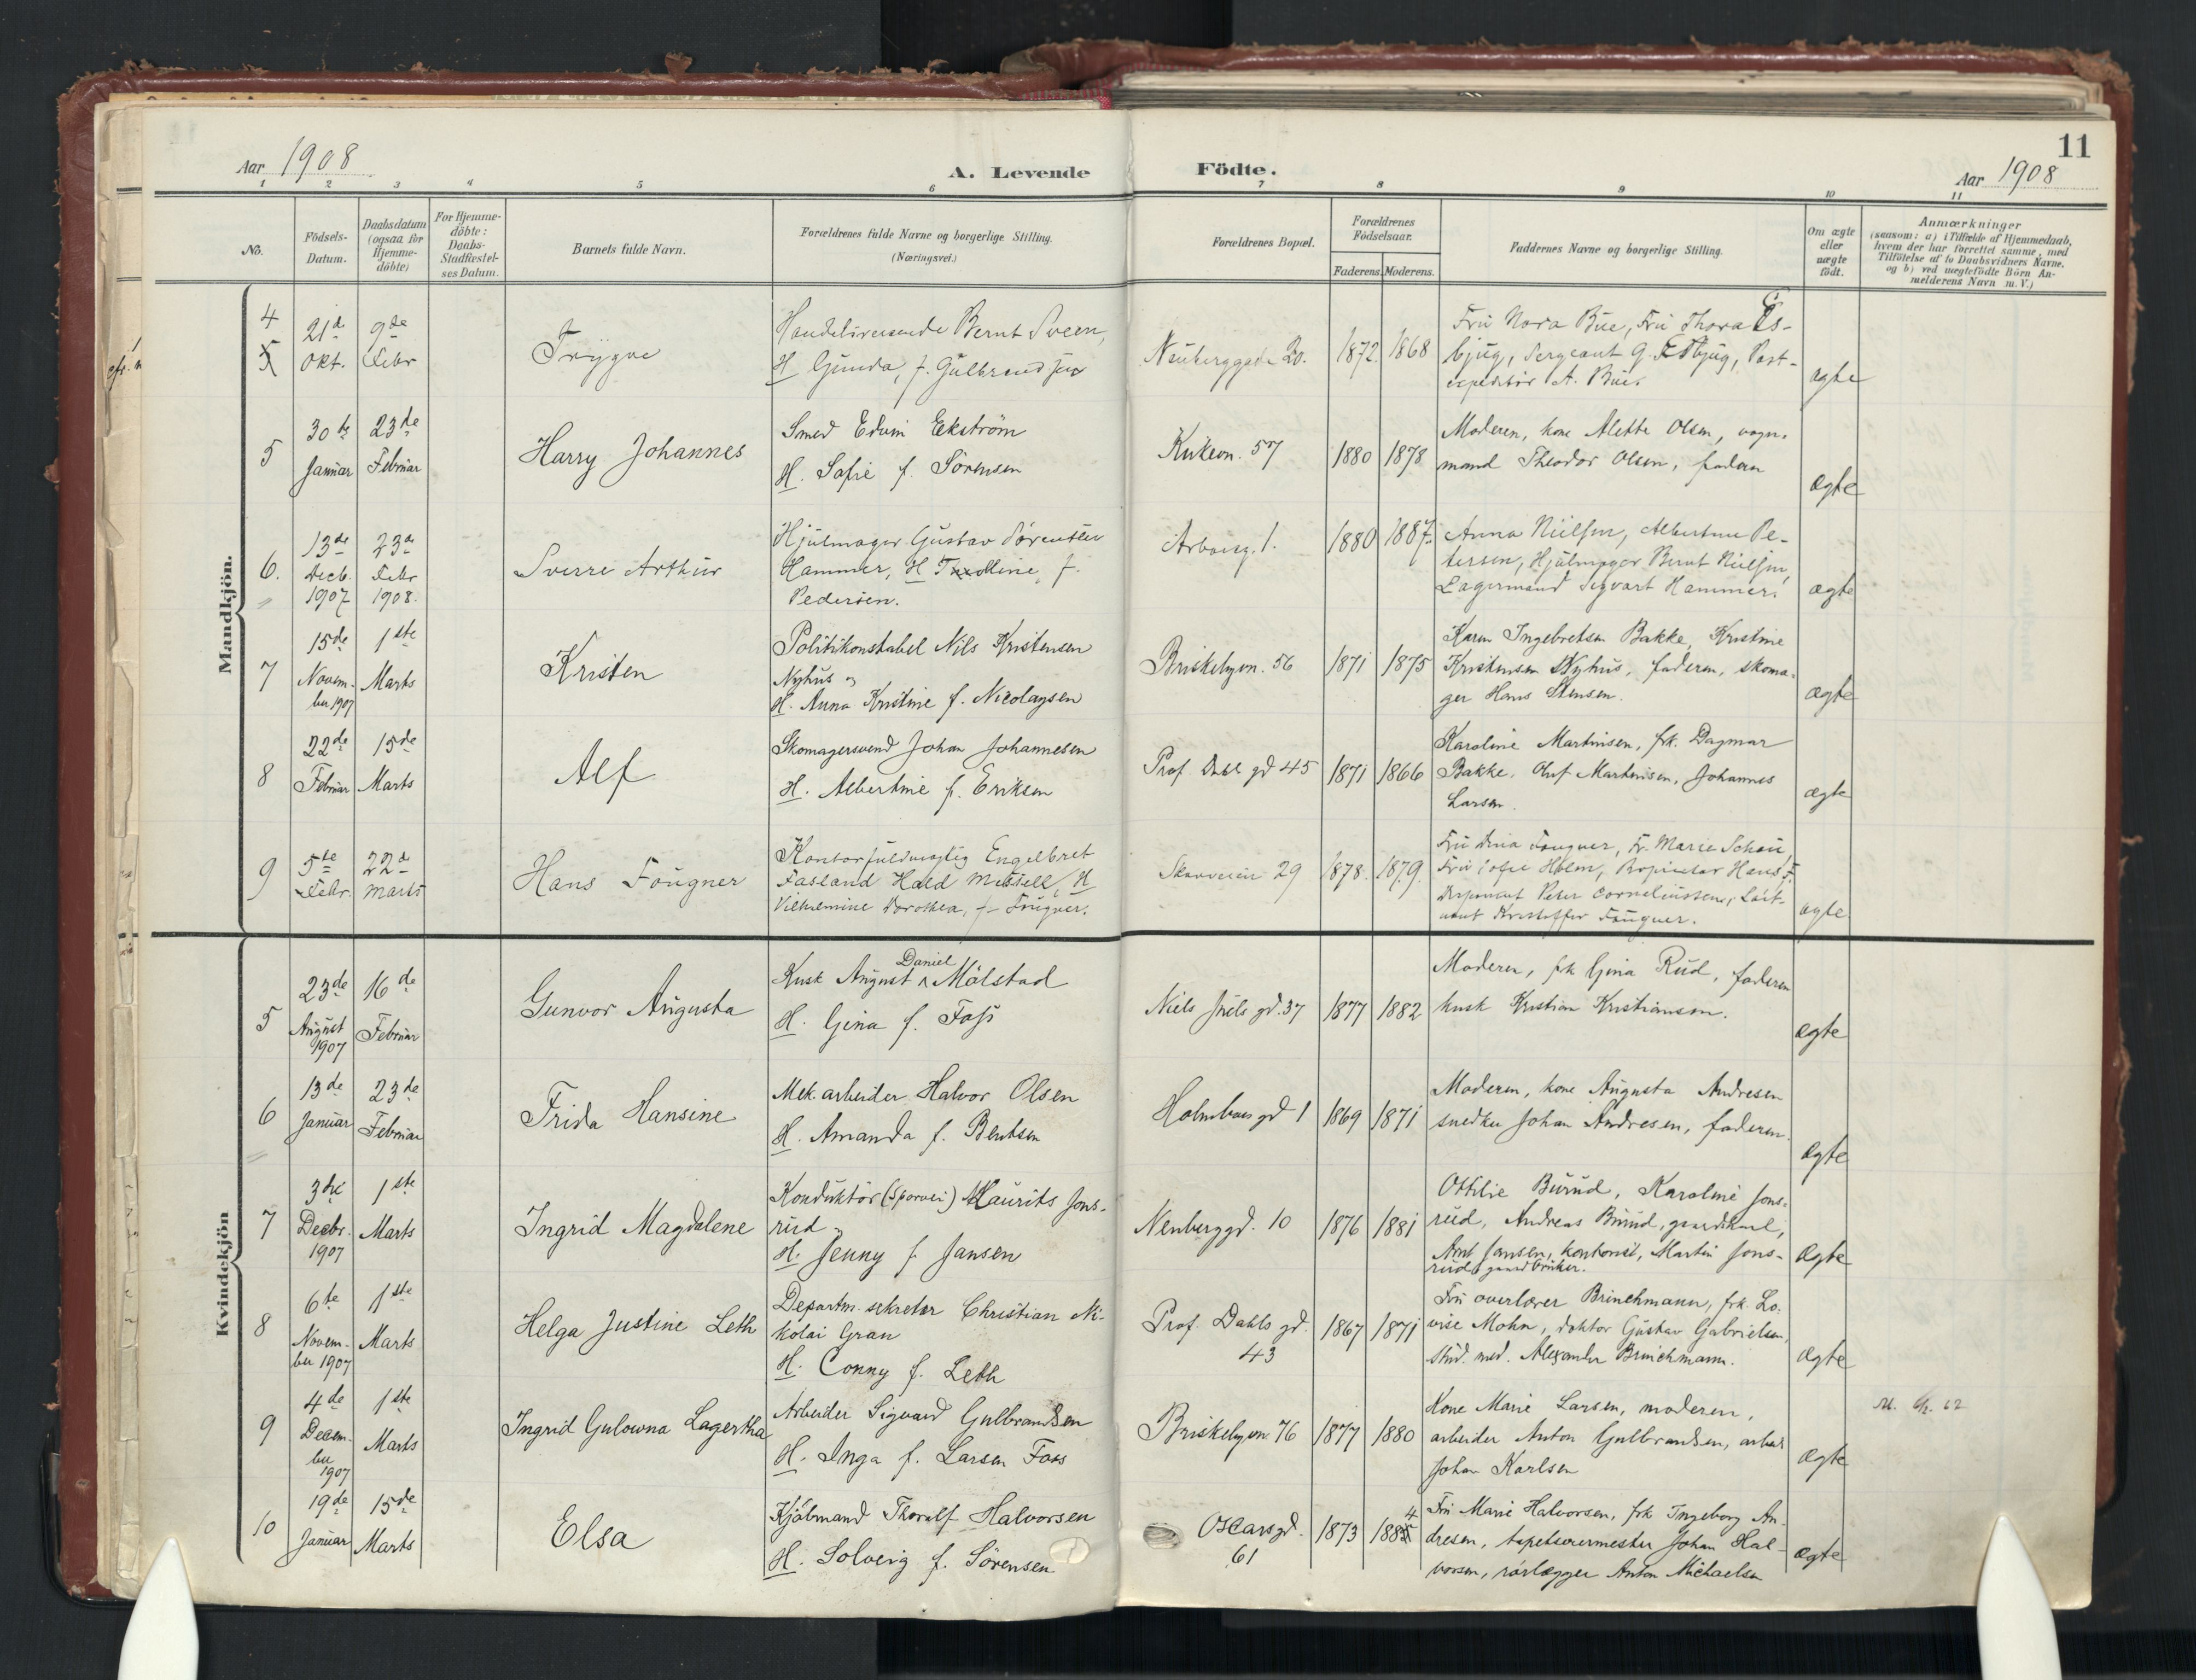 Aar 1908
A. Levende Födte.
11
Aar 1908
1 2 3 4 5 6 7 8 9 10 11
No.
Födsels-Datum.
Daabsdatum (ogsaa for Hjemme-döbte)
For Hjemme-döbte: Daabs-Stadfæstel-ses Datum.
Barnets fulde Navn.
Forældrenes fulde Navne og borgerlige Stilling. (Næringsvei.)
Forældrenes Bopæl.
Forældrenes Födselsaar.
Faderens. Moderens.
Faddernes Navne og borgerlige Stilling.
Om ægte eller uægte födt.
Anmærkninger
(saasom: a) i Tilfælde af Hjemmedaab,
hvem der har forrettet samme, med
Tilföielse af to Daabsvidners Navne,
og b) ved uægtefödte Börn An-
melderens Navn m. V.)
Mandkjön.
4
5
21de Okt.
9de Febr
Trygve
Handelsreisende Bernt Sveen,
H Gunda, f. Gulbrandsen
Neuberggade 20.
1872 1868
Fru Nora Bue, Fru Thora Es-
bjug, Sergeant G. Esbjug, Post-
expeditör A. Bue
ægte
5
30te Januar
23de Februar
Harry Johannes
Smed Edvin Ekström
H. Sofie f. Sörensen
Kirkevn. 57
1880 1878
Moderen, kone Alette Olsen, vogn-
mand Theodor Olsen, faderen
ægte
6.
13de Decb. 1907
23de Febr 1908.
Sverre Arthur
Hjulmager Gustav Sörensen
Hammer, H Tolline, f.
Pedersen.
Arbosg. 1.
1880 1887
Anna Nielsen, Albertine Pe-
tersen, Hjulmager Bernt Nielsen,
Lagermand Sigvart Hammer.
ægte
7
15de Novem-ber 1907
1ste Marts
Kristen
Politikonstabel Nils Kristensen
Nyhus og
H. Anna Kristine f. Nicolaysen
Briskebyvn. 56
1871 1875
Karen Ingebretsen Bakke, Kristine
Kristensen Nyhus, faderen, skoma-
ger Hans Stensen.
ægte
8
22de Februar
15de Marts
Alf
Skomagersvend Johan Johannesen
H. Albertine f. Eriksen
Prof. Dahls gd 45
1871 1866
Karoline Martinsen, frk. Dagmar
Bakke, Oluf Martinsen, Johannes
Larsen.
ægte
9
5te Febr.
22de Marts
Hans Fougner
Kontorfuldmægtig Engelbret
Fasland Hald Missell, H
Vilhelmine Dorothea, f. Fougner.
Skovveien 29
1878. 1879.
Fru Dina Fougner, Fr. Marie Schou,
Fru Sofie Holm, Proprietær Hans F.
Disponent Peter Corneliussen, Löit-
nant Kristoffer Fougner.
ægte
Kvindekjön
5
23de August 1907
16de Februar
Gunvor Augusta
Kusk August Daniel Mölstad
H. Gina f. Foss
Niels Juels gd. 37
1877 1882
Moderen, frk Gina Rud, faderen
kusk Kristian Kristiansen.
ægte
6
13de Januar
23de Februar
Frida Hansine
Mek. arbeider Halvor Olsen
H. Amanda f. Bentsen
Holmboes gd 1
1869 1871
Moderen, kone Augusta Andresen
snedker Johan Andresen, faderen.
ægte
7
3die Decbr. 1907
1ste Marts
Ingrid Magdalene
Konduktör (Sporvei) Maurits Jons-
rud og
H. Jenny f. Jansen
Neuberggd. 10
1876 1881
Ottilie Burud, Karoline Jons-
rud, Andreas Burud, gaardskarl,
Arnt Jansen, kontorist, Martin Jons-
rud, gaardbruker.
ægte
8
6te Novem-ber 1907
1ste Marts
Helga Justine Leth
Departm. sekretær Christian Ni-
kolai Gran
H. Conny f. Leth
Prof. Dahls gd. 43
1867 1871
Fru overlærer Brinchmann, frk. Lo-
vise Mohn, doktor Gustav Gabrielsen,
stud. med. Alexander Brinchmann.
ægte
9
4de Decem-ber 1907
1ste Marts
Ingrid Gulowna Lagertha
Arbeider Sigvard Gulbrandsen
H. Inga f. Larsen Foss
Briskebyvn. 76
1877 1880
Kone Marie Larsen, moderen,
arbeider Anton Gulbrandsen, arbei
Johan Karlsen
ægte
10
19de Januar
15de Marts
Elsa
Kjöbmand Thoralf Halvorsen
H. Solveig f. Sörensen
Oscarsgd. 61
1873 1884
Fru Marie Halvorsen, frk Ingeborg An-
dresen, tapetserermester Johan Hal-
vorsen, rörlægger Anton Michaelsen
ægte